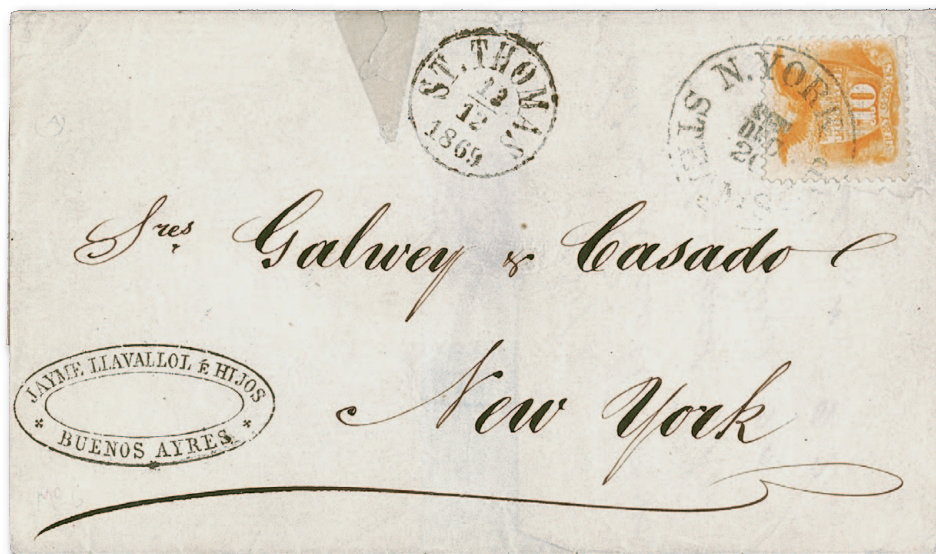 ST. THOMAS
12
1869
N. YORK
DEC
20
10
Sres Galwey & Casado
New York
JAYME LLAVALLOL É HIJOS
* BUENOS AYRES *